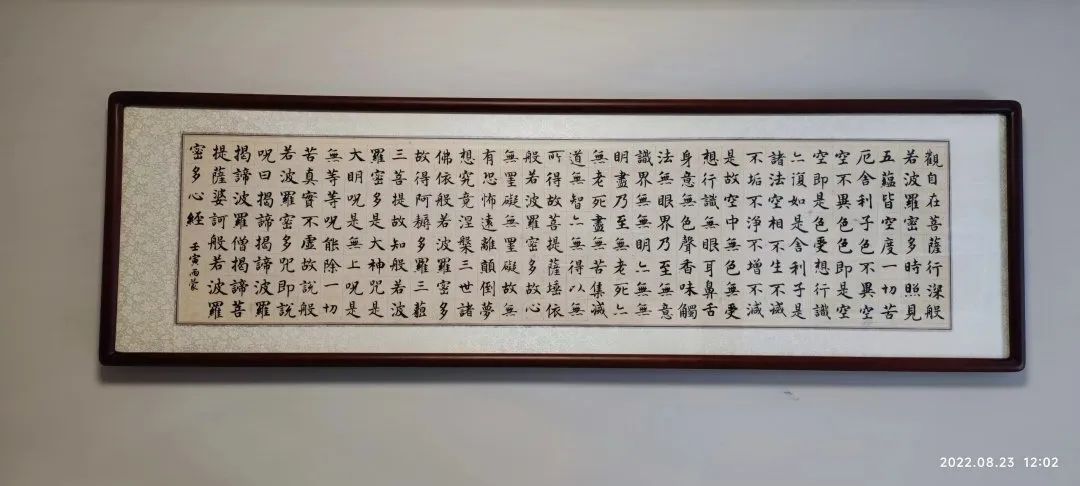 觀自在菩薩行深般
若波羅密多時照見
五蘊皆空度一切苦
厄舍利子色不異空
空不異色色即是空
空即是色受想行識
亦復如是舍利子是
諸法空相不生不滅
不垢不淨不增不減
是故空中無色無受
想行識無眼耳鼻舌
身意無色聲香味觸
法無眼界乃至無意
識界無無明亦無無
明盡乃至無老死亦
無老死盡無苦集滅
道無智亦無得以無
所得故菩提薩埵依
般若波羅密多故心
無罣礙無罣礙故無
有恐怖遠離顛倒夢
想究竟涅槃三世諸
佛依般若波羅密多
故得阿耨多羅三藐
三菩提故知般若波
羅密多是大神咒是
大明呪是無上呪是
無等等呪能除一切
苦真實不虛故說般
若波羅密多咒即說
呪曰揭諦揭諦波羅
揭諦波羅僧揭諦菩
提薩婆訶般若波羅
密多心經 壬寅雨蒙
2022.08.23 12:02